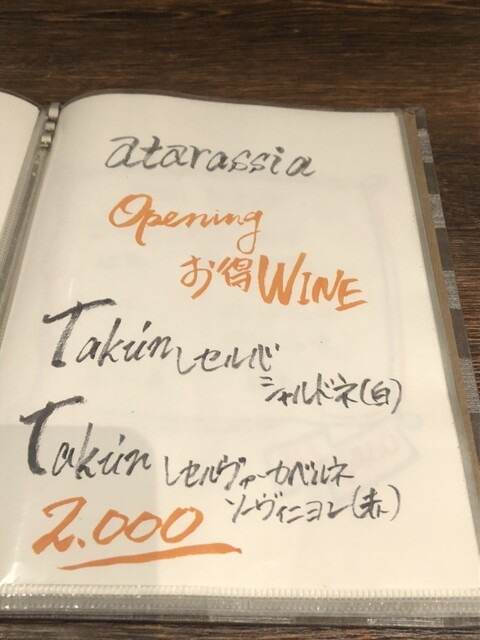 atarassia
Opening
お得WINE
Takún レセルバ
シャルドネ(白)
Takún レセルヴァーカベルネ
ソーヴィニヨン(赤)
2.000